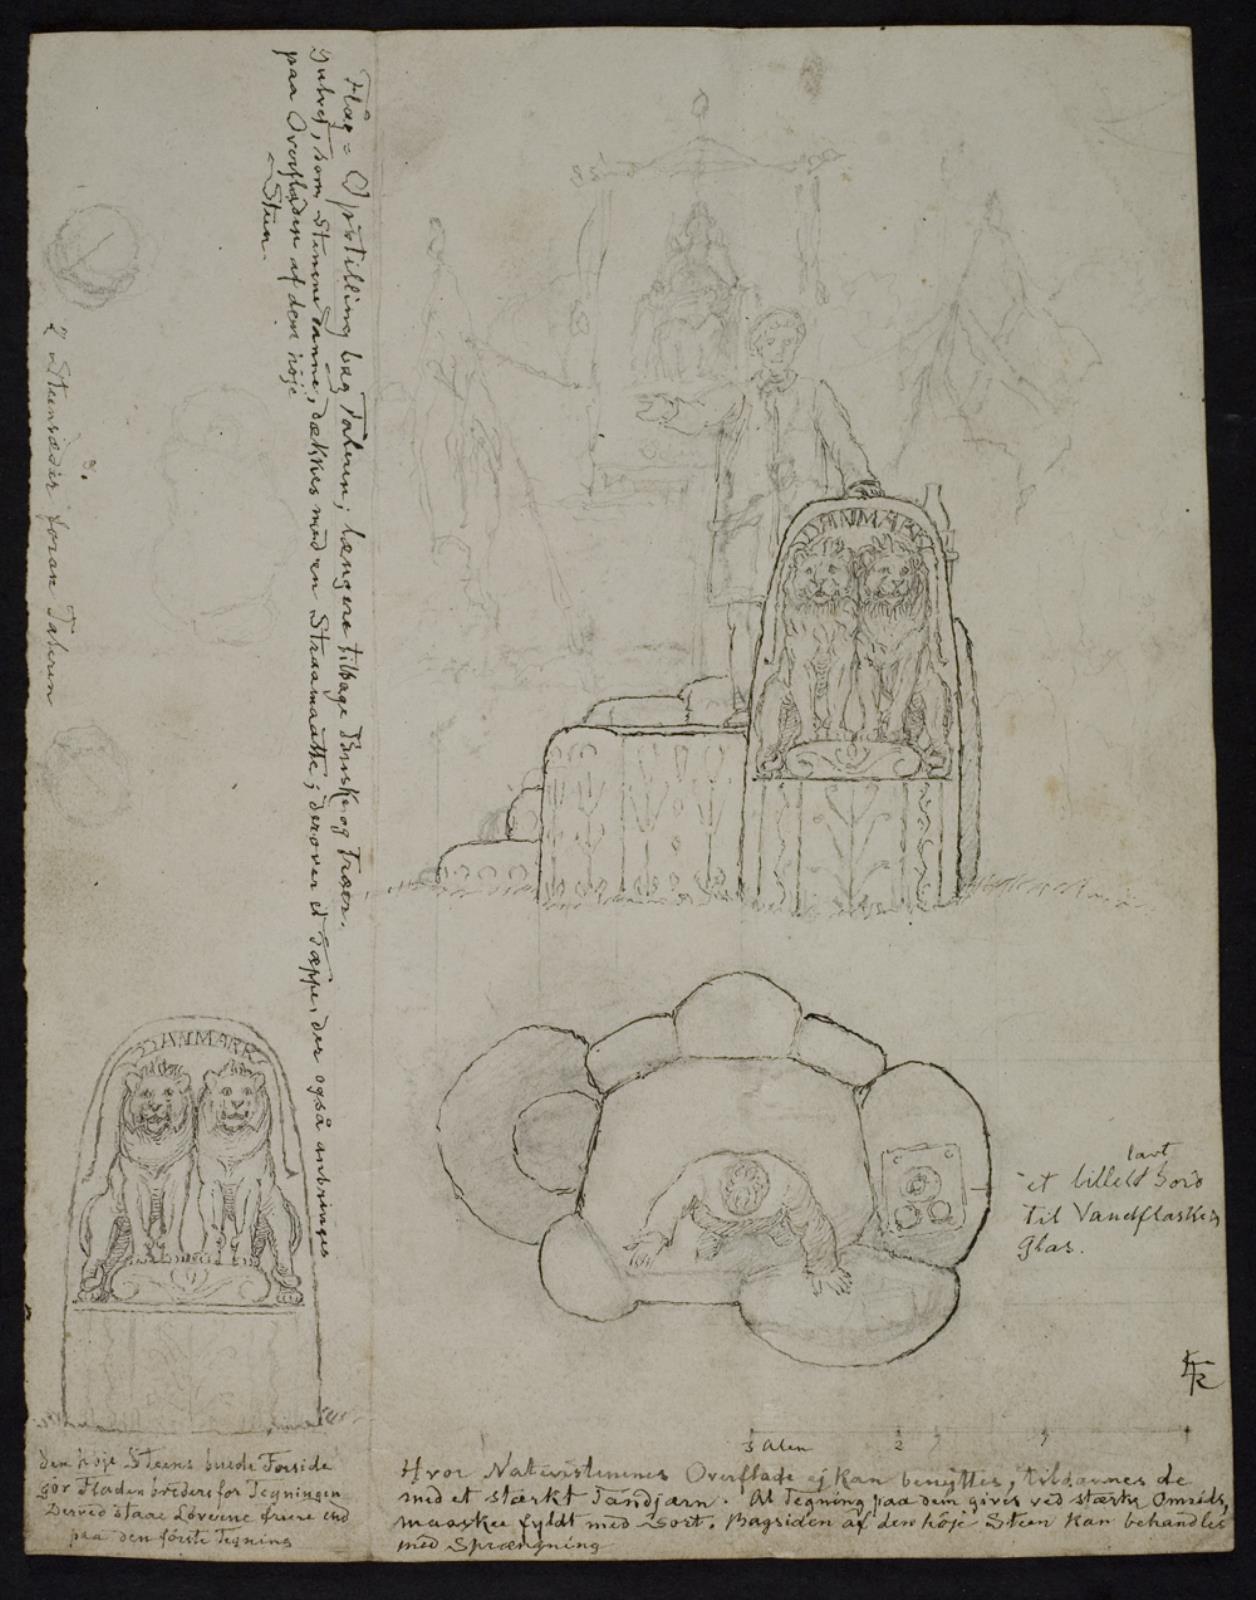 Flag = Opstilling bag Taleren; længere tilbage Buske og Træer.
Gulvet, som Stenene danne, dækkes med en Straamaatte; derover et Tæppe, der også anbringes
paa Overfladen af den høje
Steen.
2 Steensæder foran Taleren
DANMARK
DANMARK
lavt
et lillebt Bord
til Vandflaske &
Glas.
FR
3 Alen 2 1
den høje Steens buede Forside
gör Fladen bredere for Tegningen
Derved staae Löverne friere end
paa den förste Tegning
Hvor Naturstenenes Overflade ej kan benyttes, tildannes de
med et stærkt Tandjærn. Al Tegning paa dem gives ved stærke Omrids,
maaskee fyldt med Sort. Bagsiden af den høje Steen kan behandles
med Sprængning